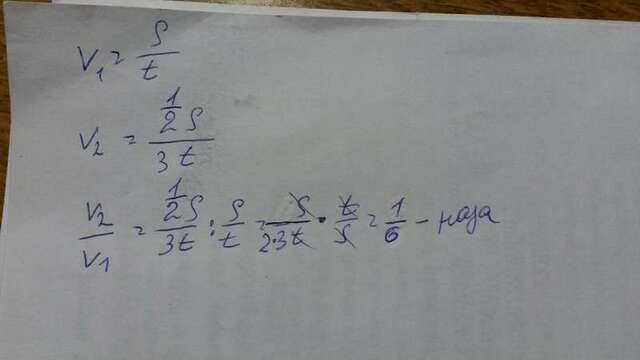 V₁ = S/t
V₂ = (1/2 S)/(3t)
V₂/V₁ = (1/2 S)/(3t) : S/t = S/(2·3t) · t/S = 1/6 - раза